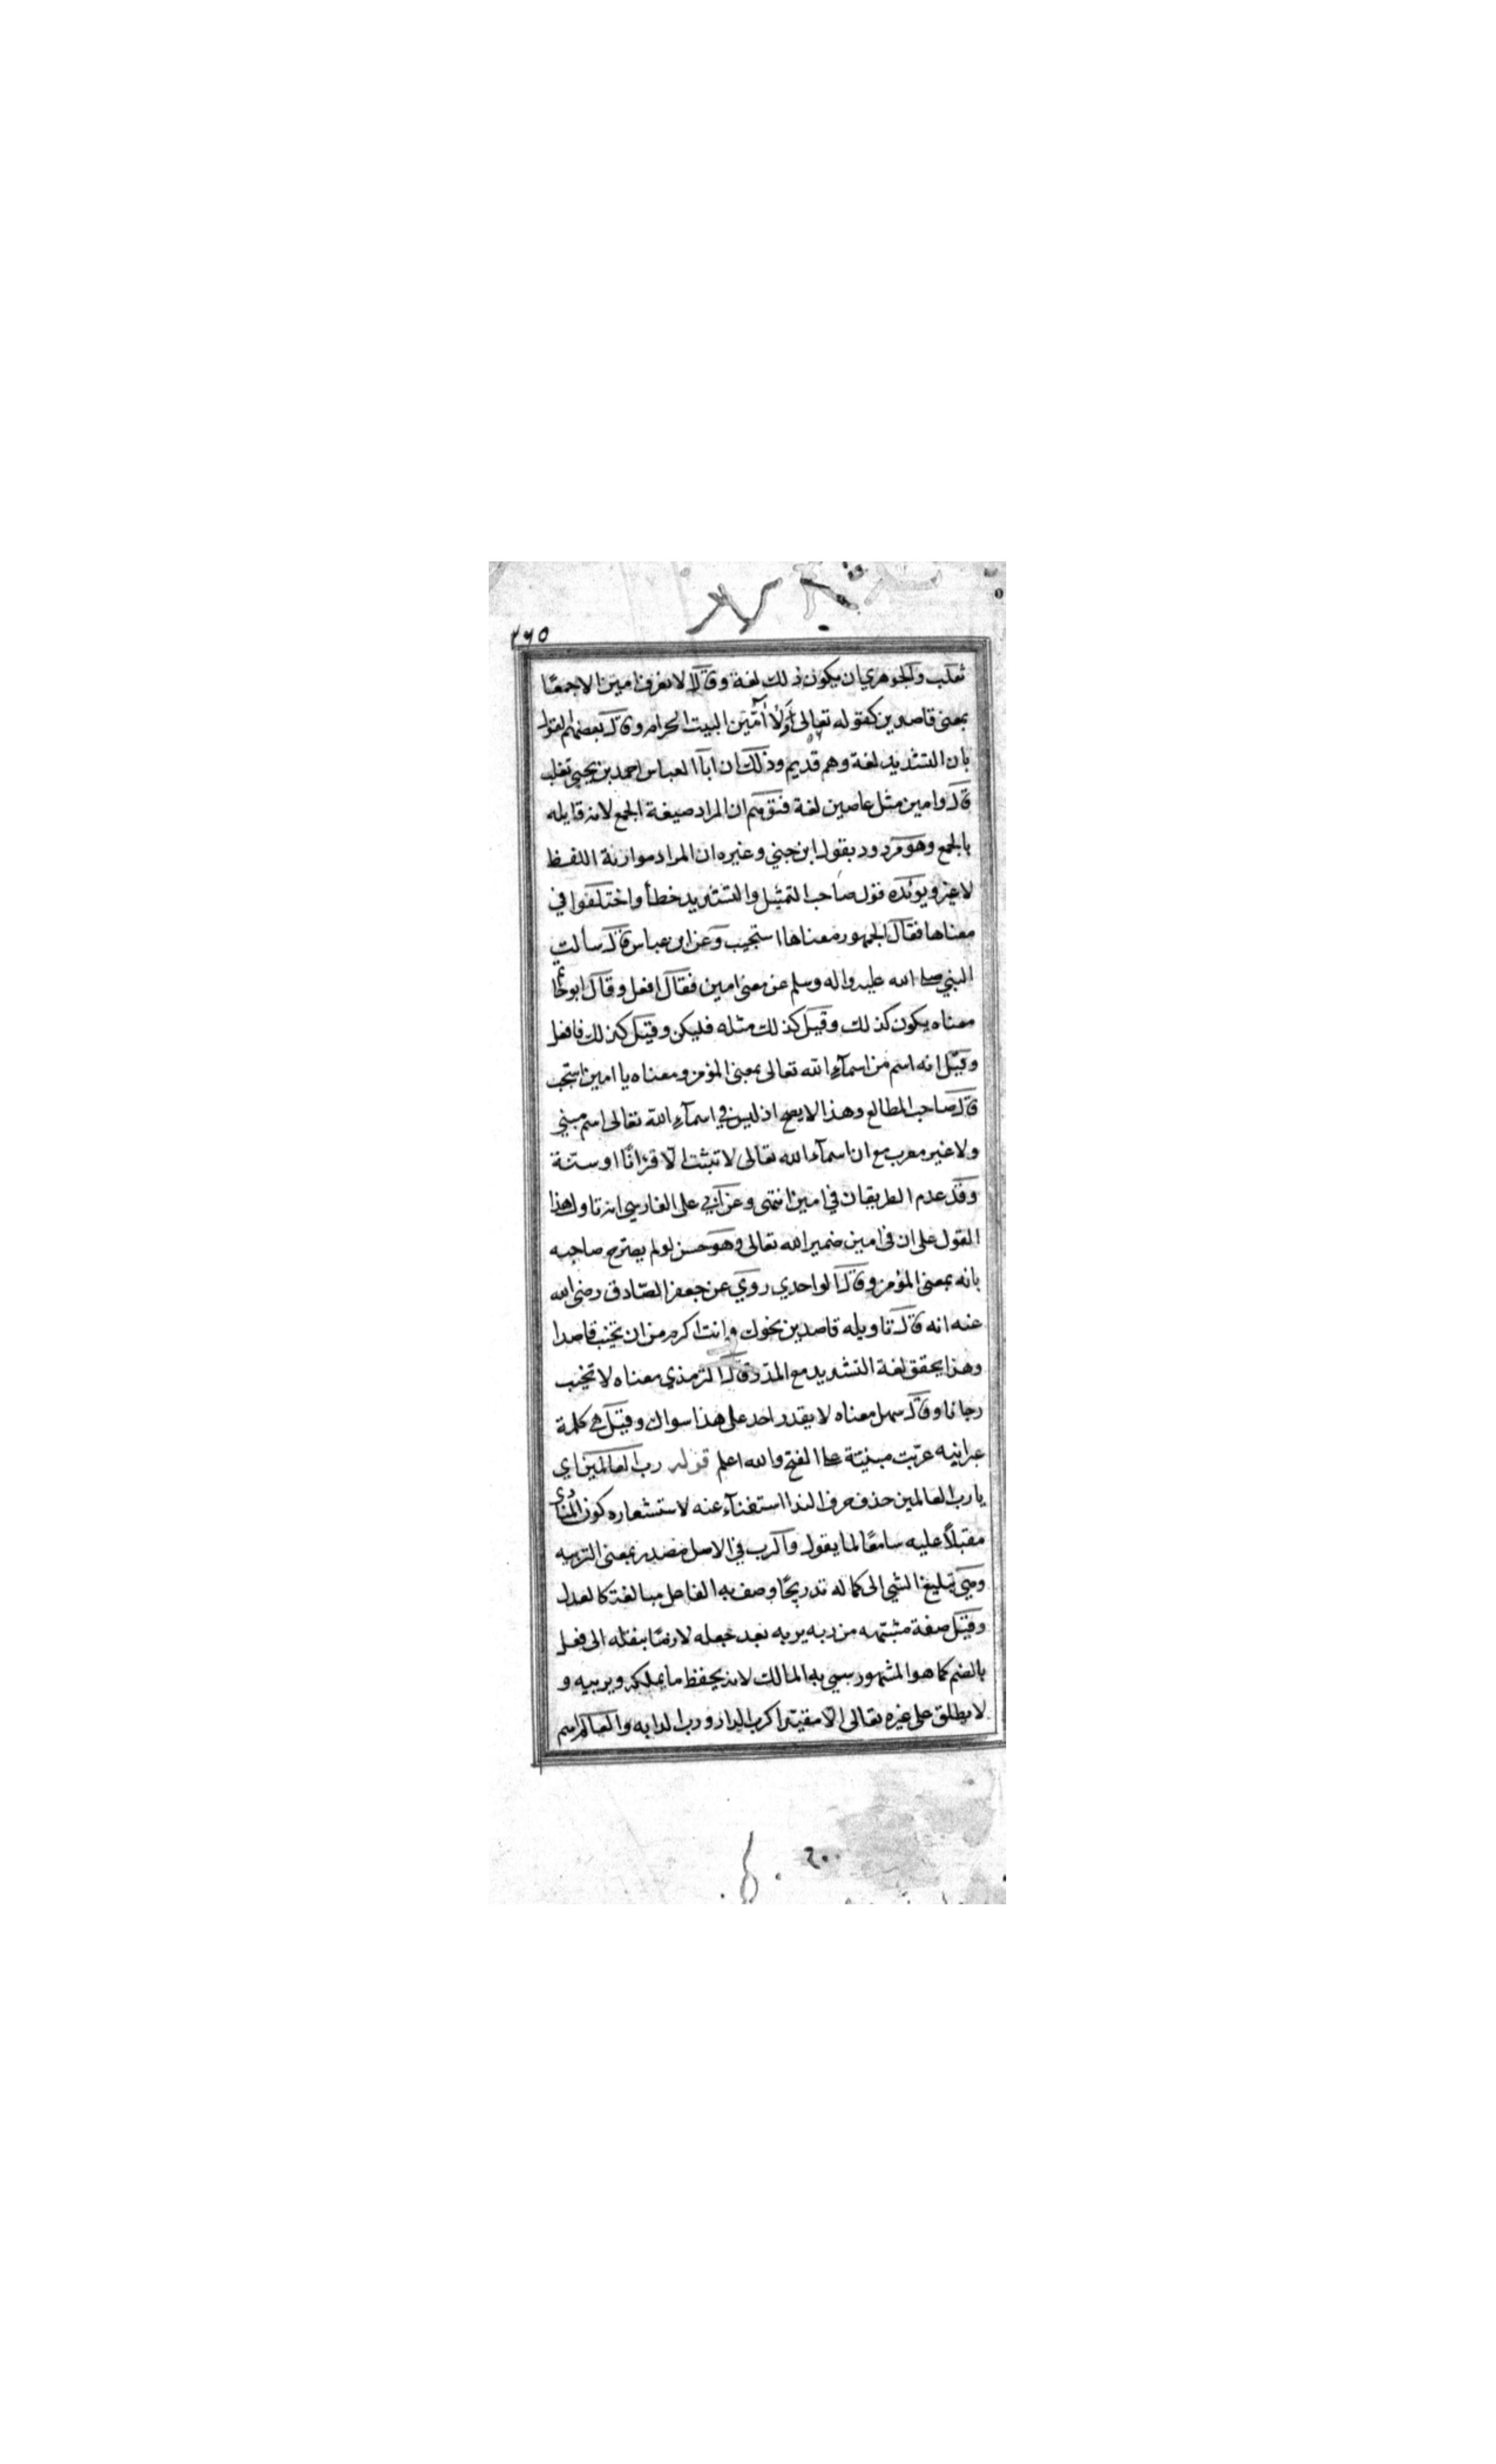 ٢٦٥
ثعلب والجوهري ان يكون ذلك لغة وقالا لا نعرف امين الا جمعًا
بمعنى قاصدين كقوله تعالى وَلَا آمِّين البيت الحرام وقال بعضهم القول
بان التشديد لغة وهم قديم وذلك ان ابا العباس احمد بن يحيى ثعلب
قال وامين مثل عاصين لغة فتوهم ان المراد صيغة الجمع لانه قابله
بالجمع وهو مردود بقول ابن جني وغيره ان المراد موازنة اللفظ
لا غير ويؤيده قول صاحب التمثيل والتشديد خطأ واختلفوا في
معناها فقال الجمهور معناها استجيب وعن ابن عباس قال سألت
النبي صلى الله عليه واله وسلم عن معنى امين فقال افعل وقال ابو حاتم
معناه يكون كذلك وقيل كذلك مثله فليكن وقيل كذلك فافعل
وقيل انه اسم من اسمآء الله تعالى بمعنى المؤمن ومعناه يا امين استجب
قال صاحب المطالع وهذا لا يصح اذ ليس في اسمآء الله تعالى اسم مبني
ولا غير معرب مع ان اسمآء الله تعالى لا تثبت الا قرانًا او سنة
وقد عدم الطريقان في امين انتهى وعن ابي على الفارسي انه تاول هذا
القول على ان في امين ضمير الله تعالى وهو حسن لو لم يصرح صاحبه
بانه بمعنى المؤمن وقال الواحدي روي عن جعفر الصادق رضى الله
عنه انه قال تاويله قاصدين نحوك وانت اكرم من ان تخيب قاصدا
وهذا يحقق لغة التشديد مع المدد قال الترمذي معناه لا تخيب
رجانا وقال سهل معناه لا يقدر احد على هذا سواك وقيل هي كلمة
عبرانيه عربت مبنية على الفتح والله اعلم قوله رب العالمين اي
يا رب العالمين حذف حرف الندا استغنآء عنه لاستشعاره كون المنادى
مقبلاً عليه سامعًا لما يقول والرب في الاصل مصدر بمعنى التربيه
وهي تبليغ الشي الى كماله تدريجًا وصف به الفاعل مبالغة كالعدل
وقيل صفة مشبهه من ربه يربه بعد جعله لازمًا بنقله الى فعل
بالضم كما هو المشهور سمي به المالك لانه يحفظ ما يملكه ويربيه و
لا يطلق على غيره تعالى الا مقيدا كرب الدار ورب الدابه والعالم اسم